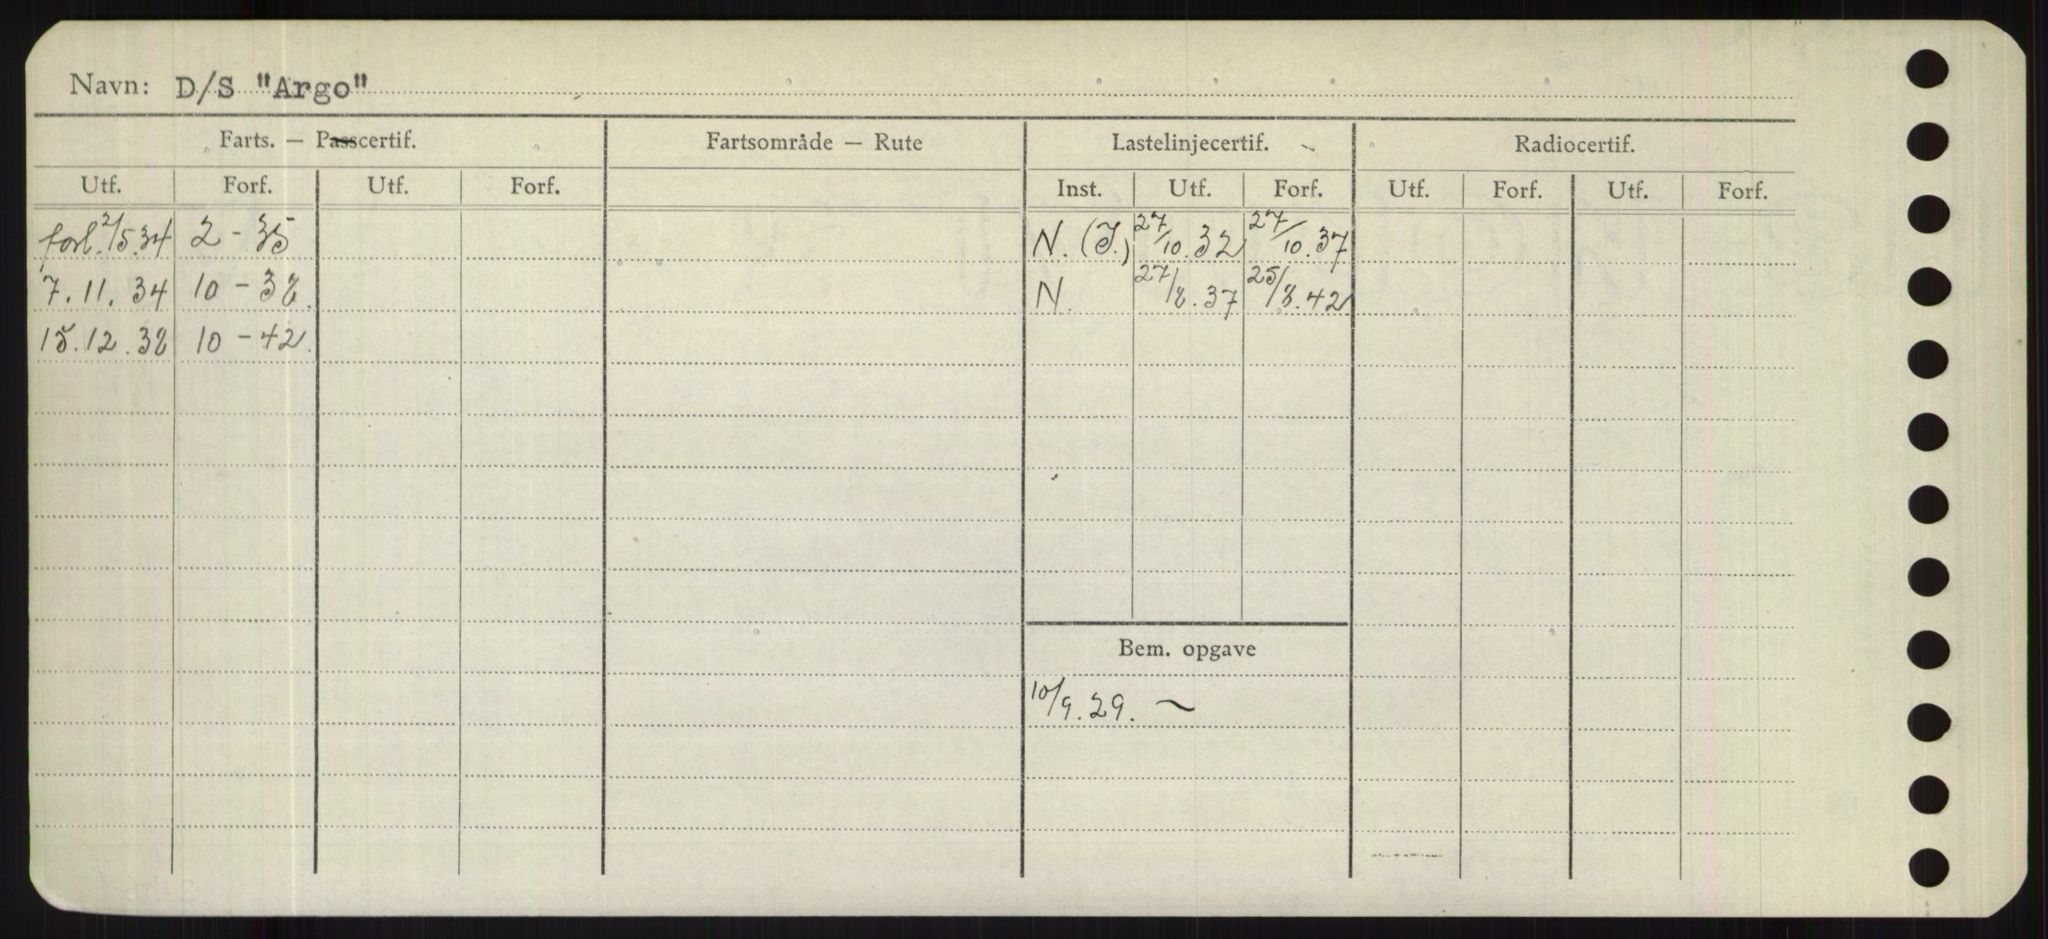 Navn: D/S "Argo"
Farts. — Passcertif. Fartsområde — Rute Lastelinjecertif. Radiocertif.
Utf. Forf. Utf. Forf. Inst. Utf. Forf. Utf. Forf. Utf. Forf.
forl. 2/5.34 2 - 35 N. (I.) 27/10.32 27/10.37
7.11.34 10 - 38. N. 27/8.37 25/8.42
15.12.38 10 - 42.
Bem. opgave
10/9.29. ~